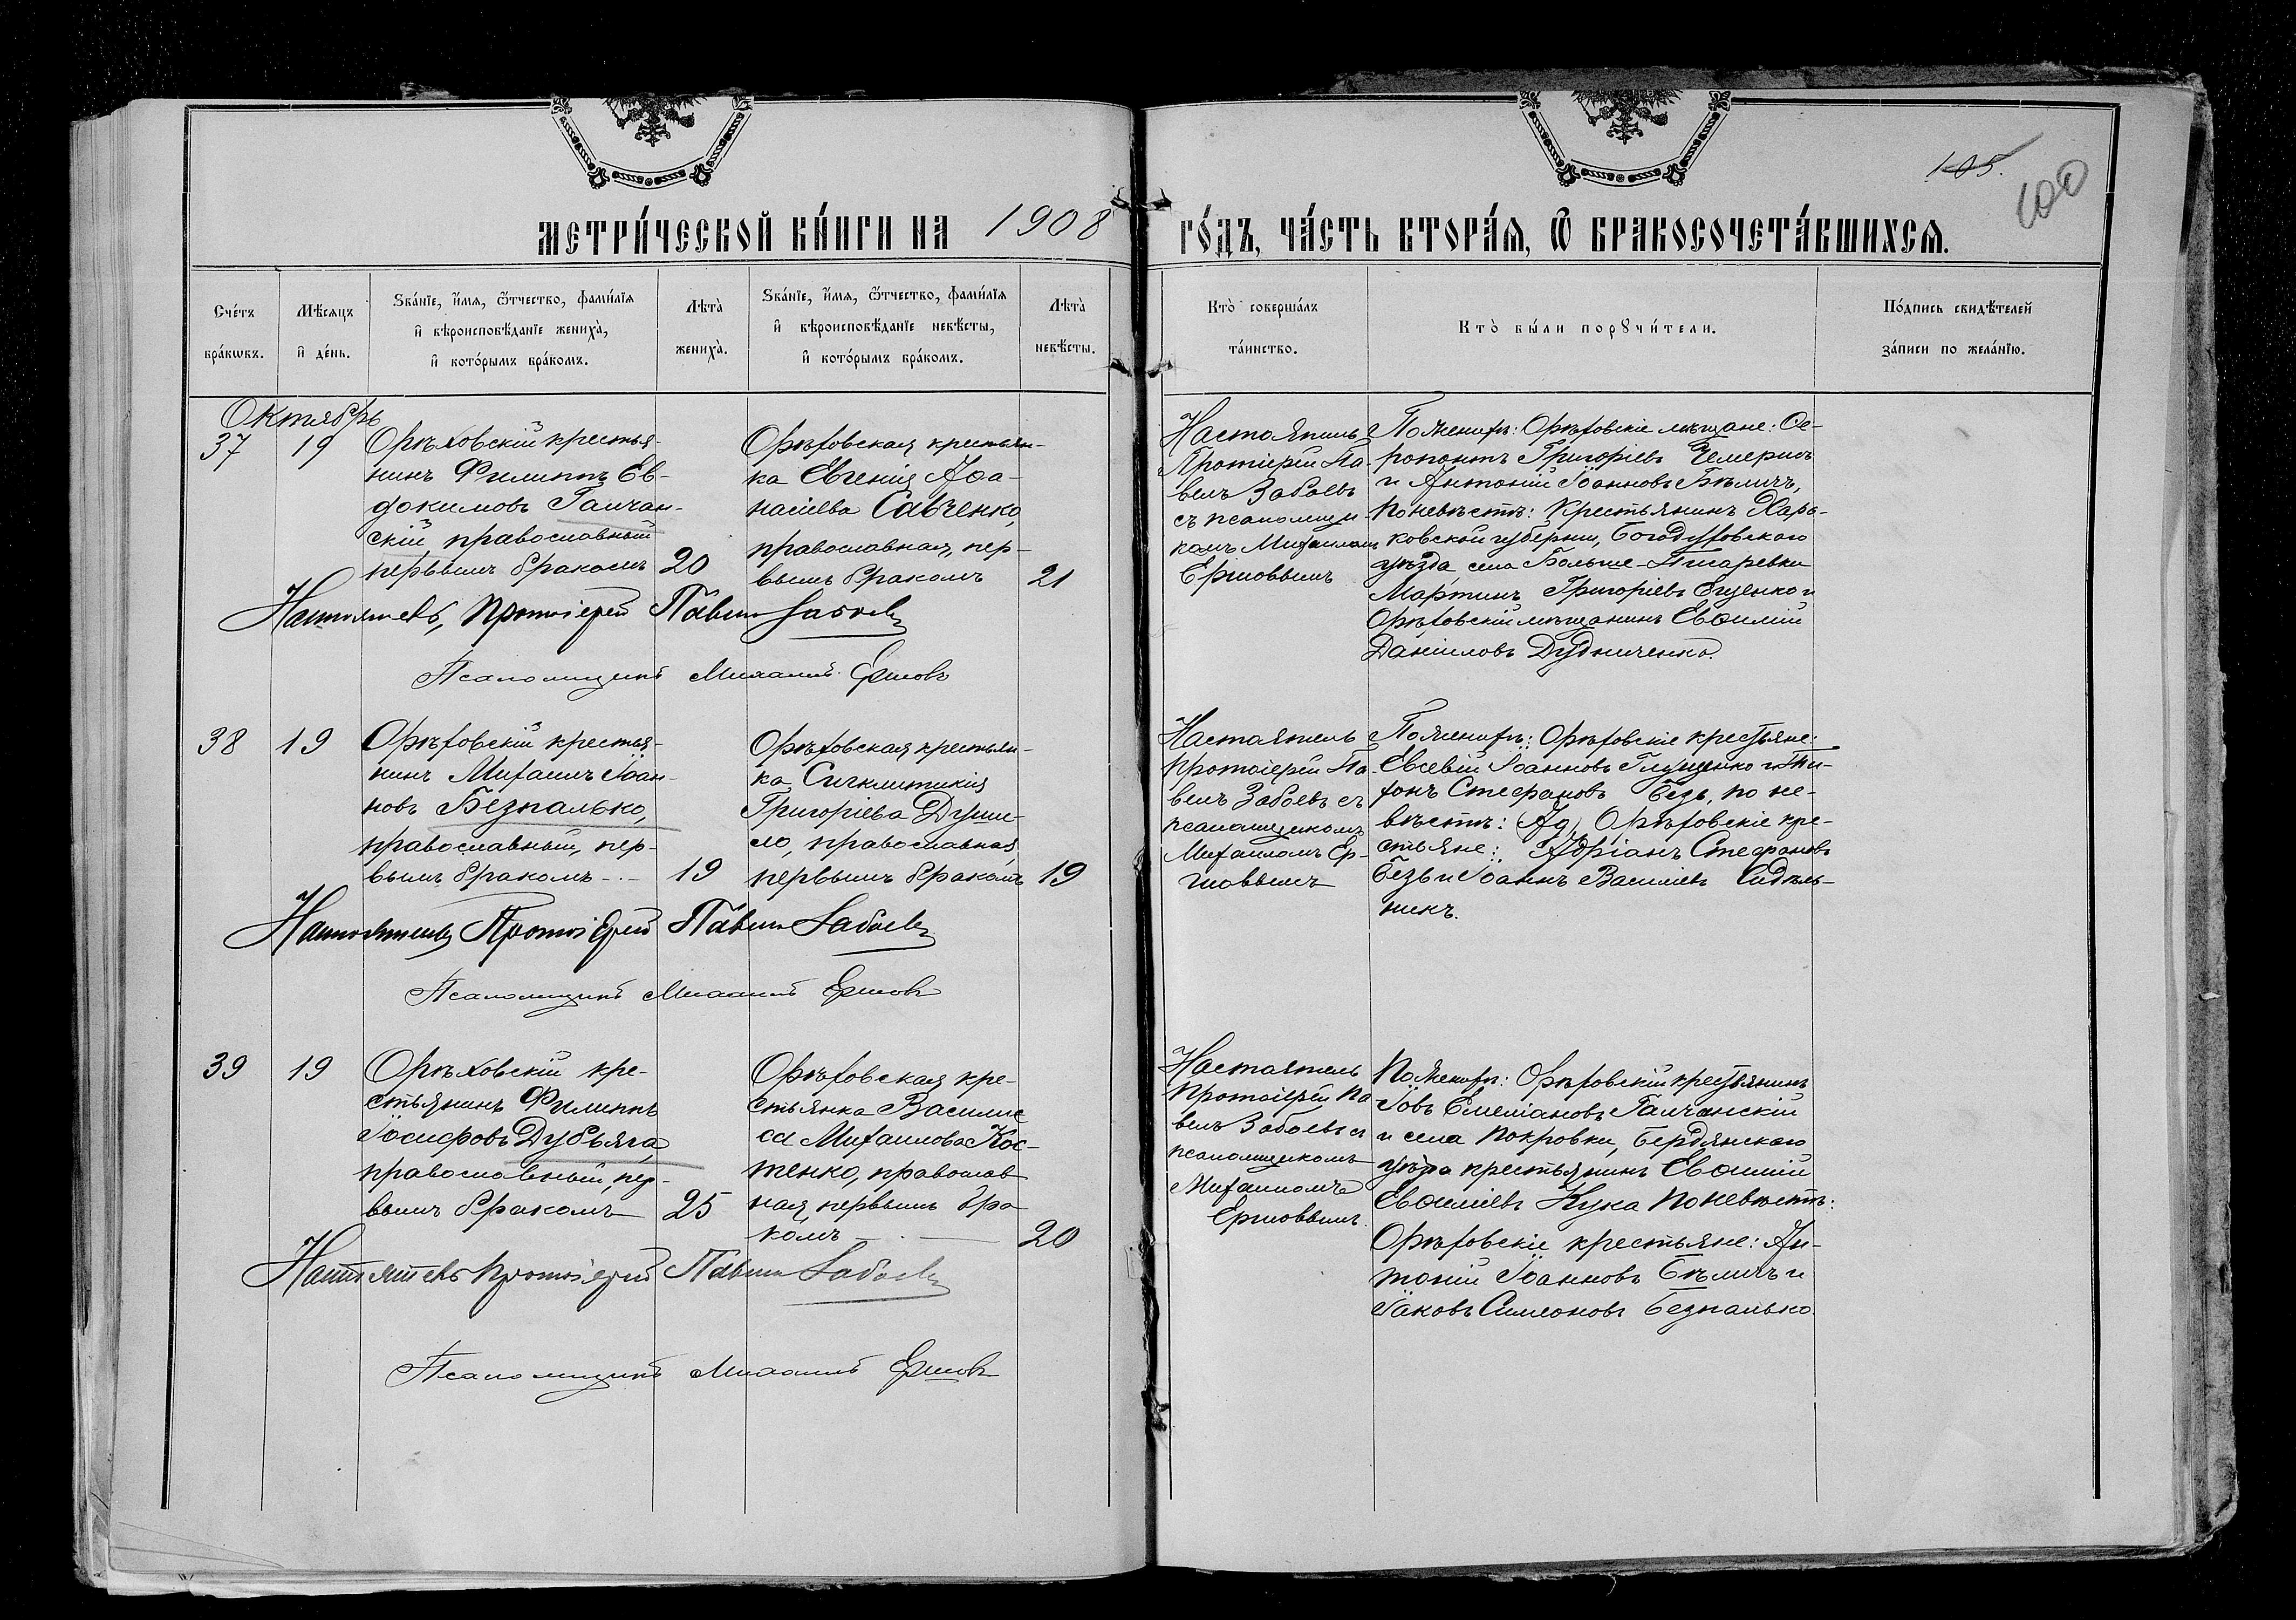 105.
100
МЕТРИ́ЧЕСКОЙ КНИ́ГИ НА 1908 ГО́ДЪ, ЧА́СТЬ ВТОРА́Я, Ѡ БРАКОСОЧЕТА́ВШИХСЯ.
Сче́тъ
бра́кѡвъ.
Мѣ́сяцъ
и҆ де́нь.
Ѕва́нїе, и҆́мя, ѻ҆́тчество, фами́лїя
и҆ вѣроисповѣ́данїе жениха̀,
и҆ кото́рымъ бра́комъ.
Лѣта̀
жениха̀.
Ѕва́нїе, и҆́мя, ѻ҆́тчество, фами́лїя
и҆ вѣроисповѣ́данїе невѣ́сты,
и҆ кото́рымъ бра́комъ.
Лѣта̀
невѣ́сты.
Кто̀ соверша́лъ
та́инство.
Кто̀ бы́ли порꙋчи́тели.
По́дпись свидѣ́телей
за́писи по жела́нїю.
Октябрь
37
19
Орѣховскій крестья-
нинъ Филиппъ Ев-
докимовъ Галчан-
скій православный
первымъ бракомъ
20
Орѣховская крестьян-
ка Евгенія Аѳа-
насіева Савченко,
православная, пер-
вымъ бракомъ
21
Настоятель
Протіерей Па-
велъ Забаевъ
съ псаломщи-
комъ Михаиломъ
Ершовымъ
По женихѣ: Орѣховскіе мѣщане: Се-
рапонтъ Григоріевъ Чемерисъ
и Антоній Іоанновъ Бѣличъ,
По невѣстѣ: Крестьянинъ Харь-
ковской губерніи, Богодуховскаго
уѣзда, села Больше-Писаревки
Мартинъ Григоріевъ Ященко и
Орѣховскій мѣщанинъ Евѳимій
Даніиловъ Дудниченко.
Настоятель, Протоіерей Павелъ Забаевъ
Псаломщикъ Михаилъ Ершовъ
38
19
Орѣховскій крестья-
нинъ Михаилъ Іоан-
новъ Безпалько,
православный, пер-
вымъ бракомъ
19
Орѣховская крестьян-
ка Сигклитикія
Григоріева Душе-
ло, православная,
первымъ бракомъ
19
Настоятель
протоіерей Па-
велъ Забаевъ съ
псаломщикомъ
Михаиломъ Ер-
шовымъ
По женихѣ: Орѣховскіе крестьяне:
Евсевій Іоанновъ Глущенко и Ти-
хонъ Стефановъ Безъ, по не-
вѣстѣ: Орѣховскіе кре-
стьяне: Адріанъ Стефановъ
Безъ и Іоаннъ Василіевъ Сидѣль-
никъ.
Настоятель Протоіерей Павелъ Забаевъ
Псаломщикъ Михаилъ Ершовъ
39
19
Орѣховскій кре-
стьянинъ Филиппъ
Іосифовъ Дубьяга,
православный, пер-
вымъ бракомъ
25
Орѣховская кре-
стьянка Василис
са Михаилова Кос-
тенко, православ
ная, первымъ бра
комъ
20
Настоятель
протоіерей Па
велъ Забаевъ съ
псаломщикомъ
Михаиломъ
Ершовымъ.
По женихѣ: Орѣховскій крестьянинъ
Іовъ Емеліановъ Галчанскій
и села Покровки, Бердянскаго
уѣзда крестьянинъ Евѳимій
Евѳиміевъ Кука По невѣстѣ:
Орѣховскіе крестьяне: Ан-
тоній Іоанновъ Бѣличъ и
Іаковъ Симеоновъ Безпалько.
Настоятель Протоіерей Павелъ Забаевъ
Псаломщикъ Михаилъ Ершовъ